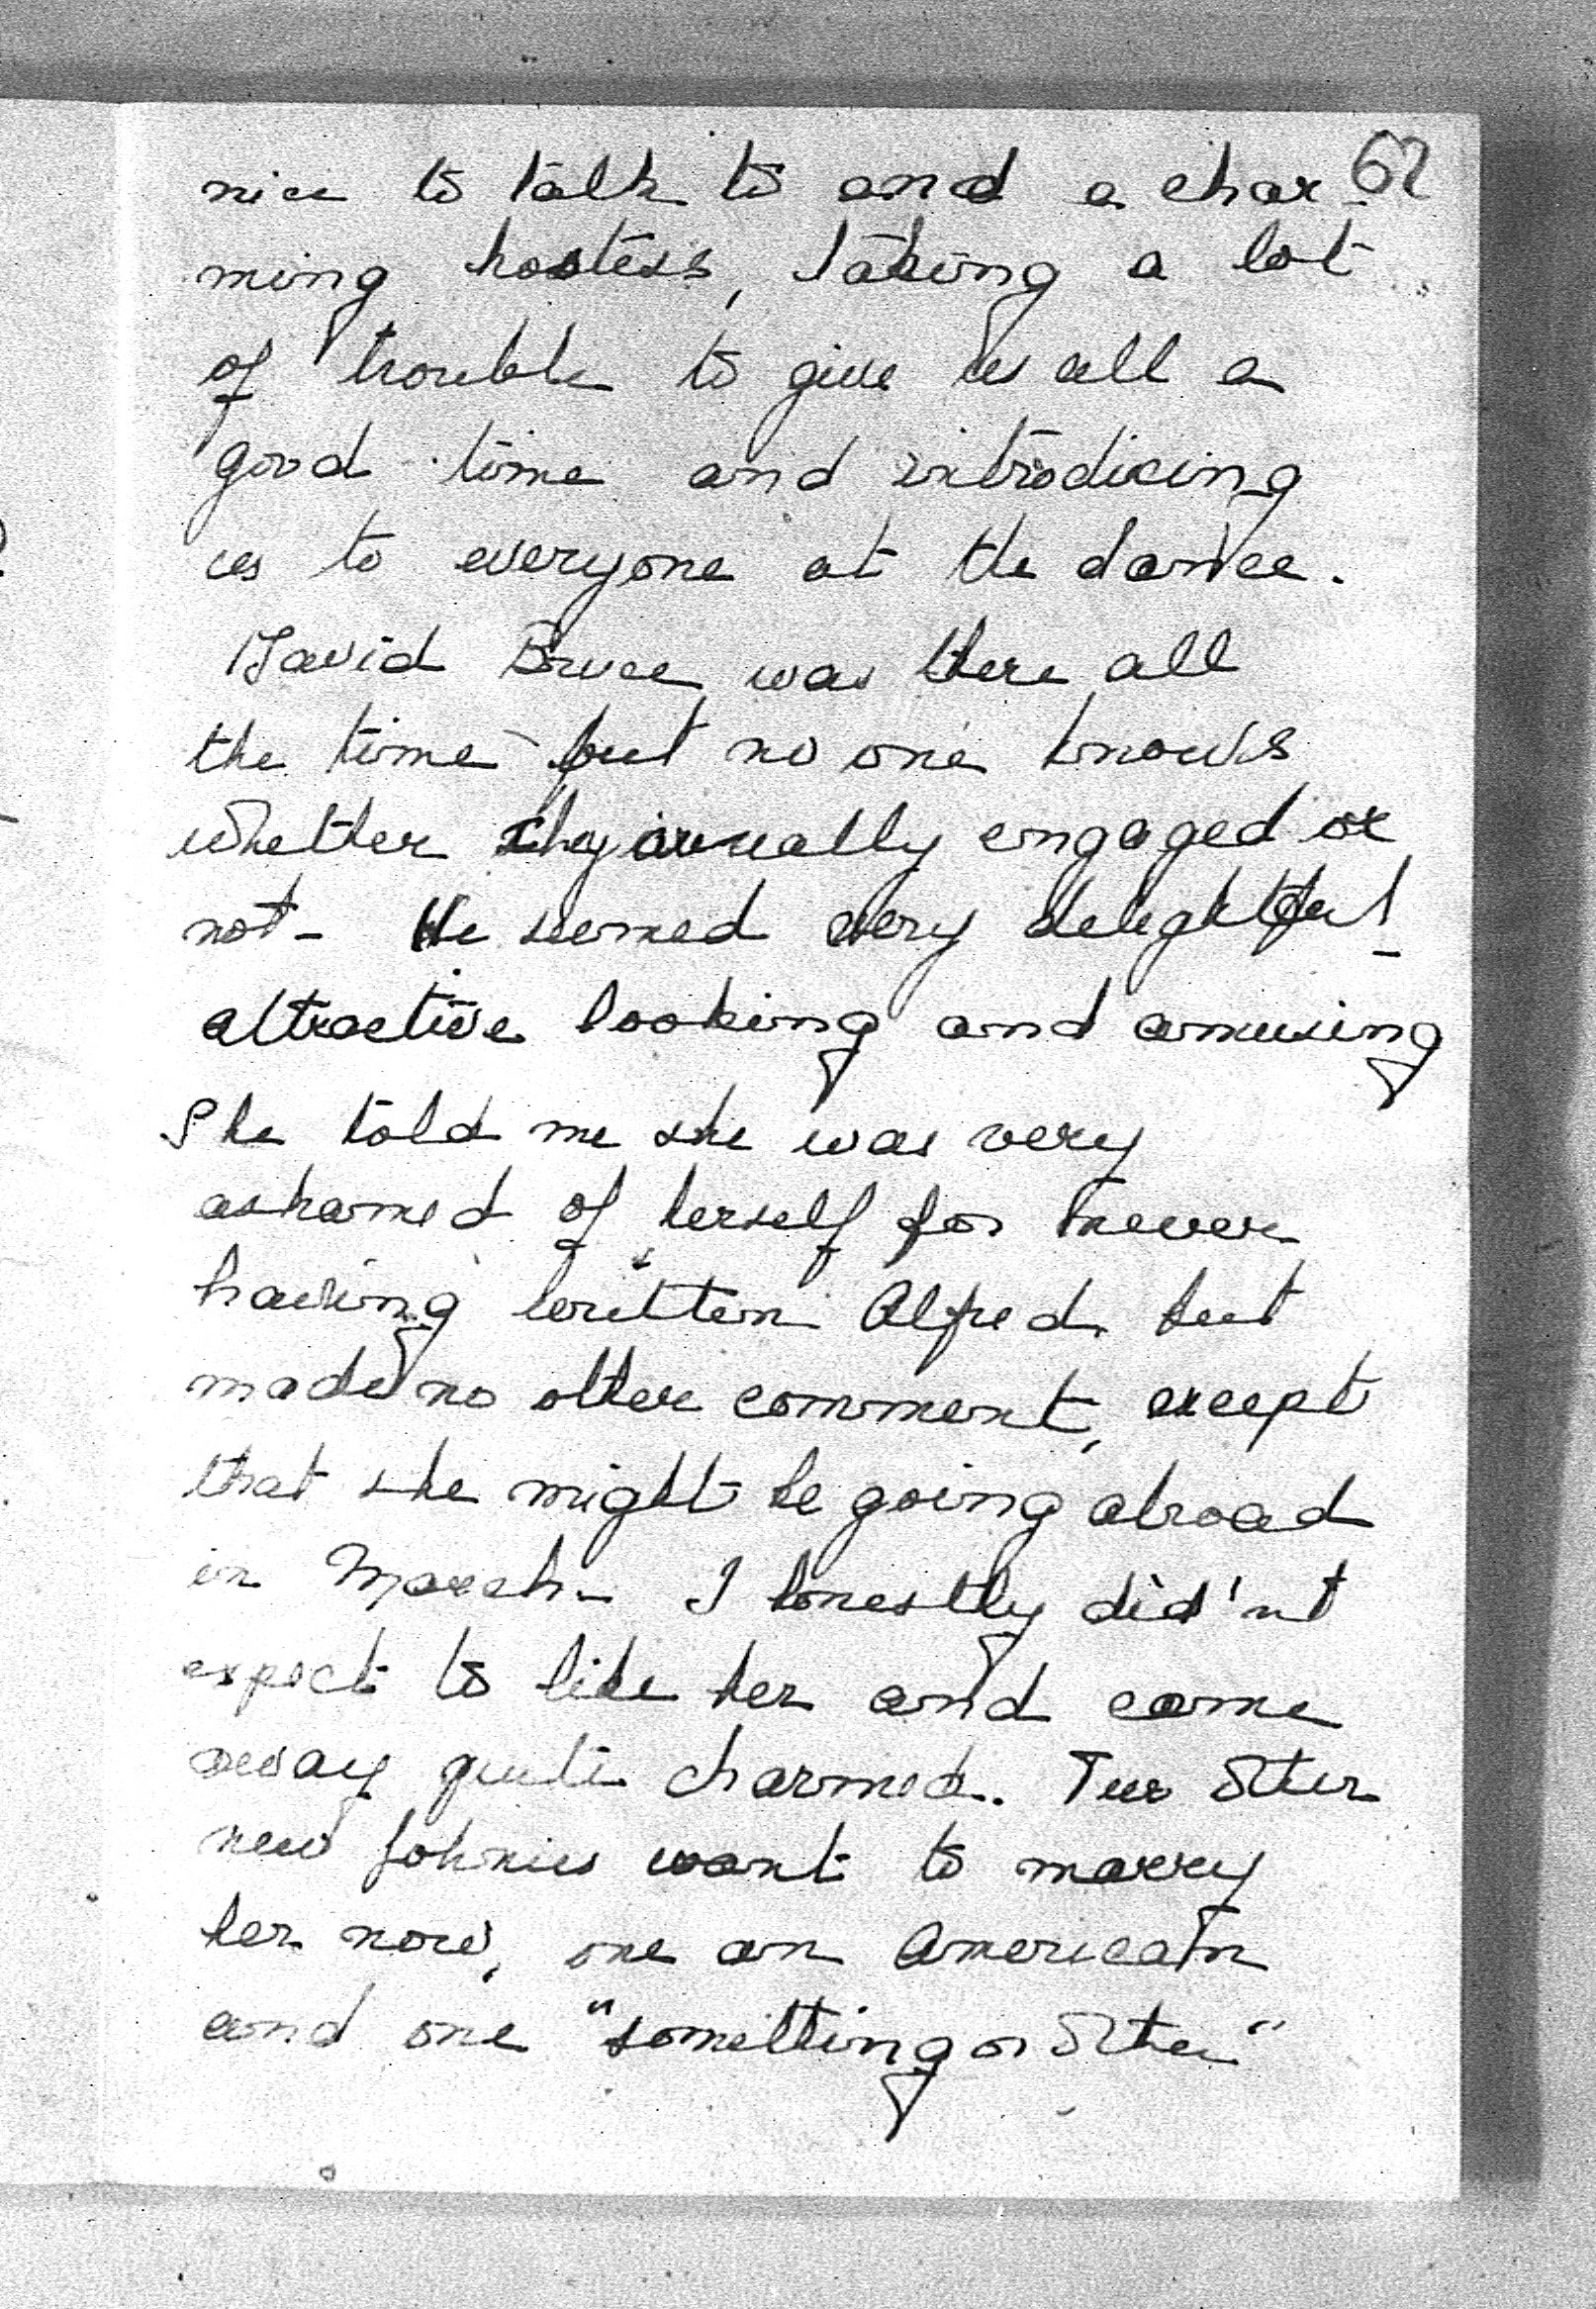 62
nice to talk to and a char-
ming hostess, taking a lot
of trouble to give us all a
good time and introducing
us to everyone at the dance.
David Bruce was there all
the time but no one knows
whether they are really engaged or
not - He seemed very delightful -
attractive looking and amusing
She told me she was very
ashamed of herself for never
having written Alfred but
made no other comment, except
that she might be going abroad
in March - I honestly did'nt
expect to like her and came
away quite charmed. Two other
new Johnies want to marry
her now, one an American
and one "something or other"